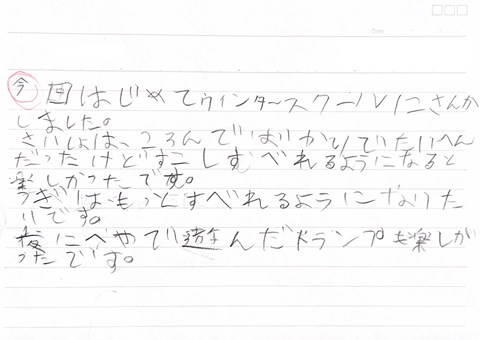 今回はじめてウィンタースクールにさんか
しました。
さいしょは、ころんでばかりでたいへん
だったけどすこしすべれるようになると
楽しかったです。
つぎはもっとすべれるようになりた
いです。
夜にへやで遊んだトランプも楽しか
ったです。